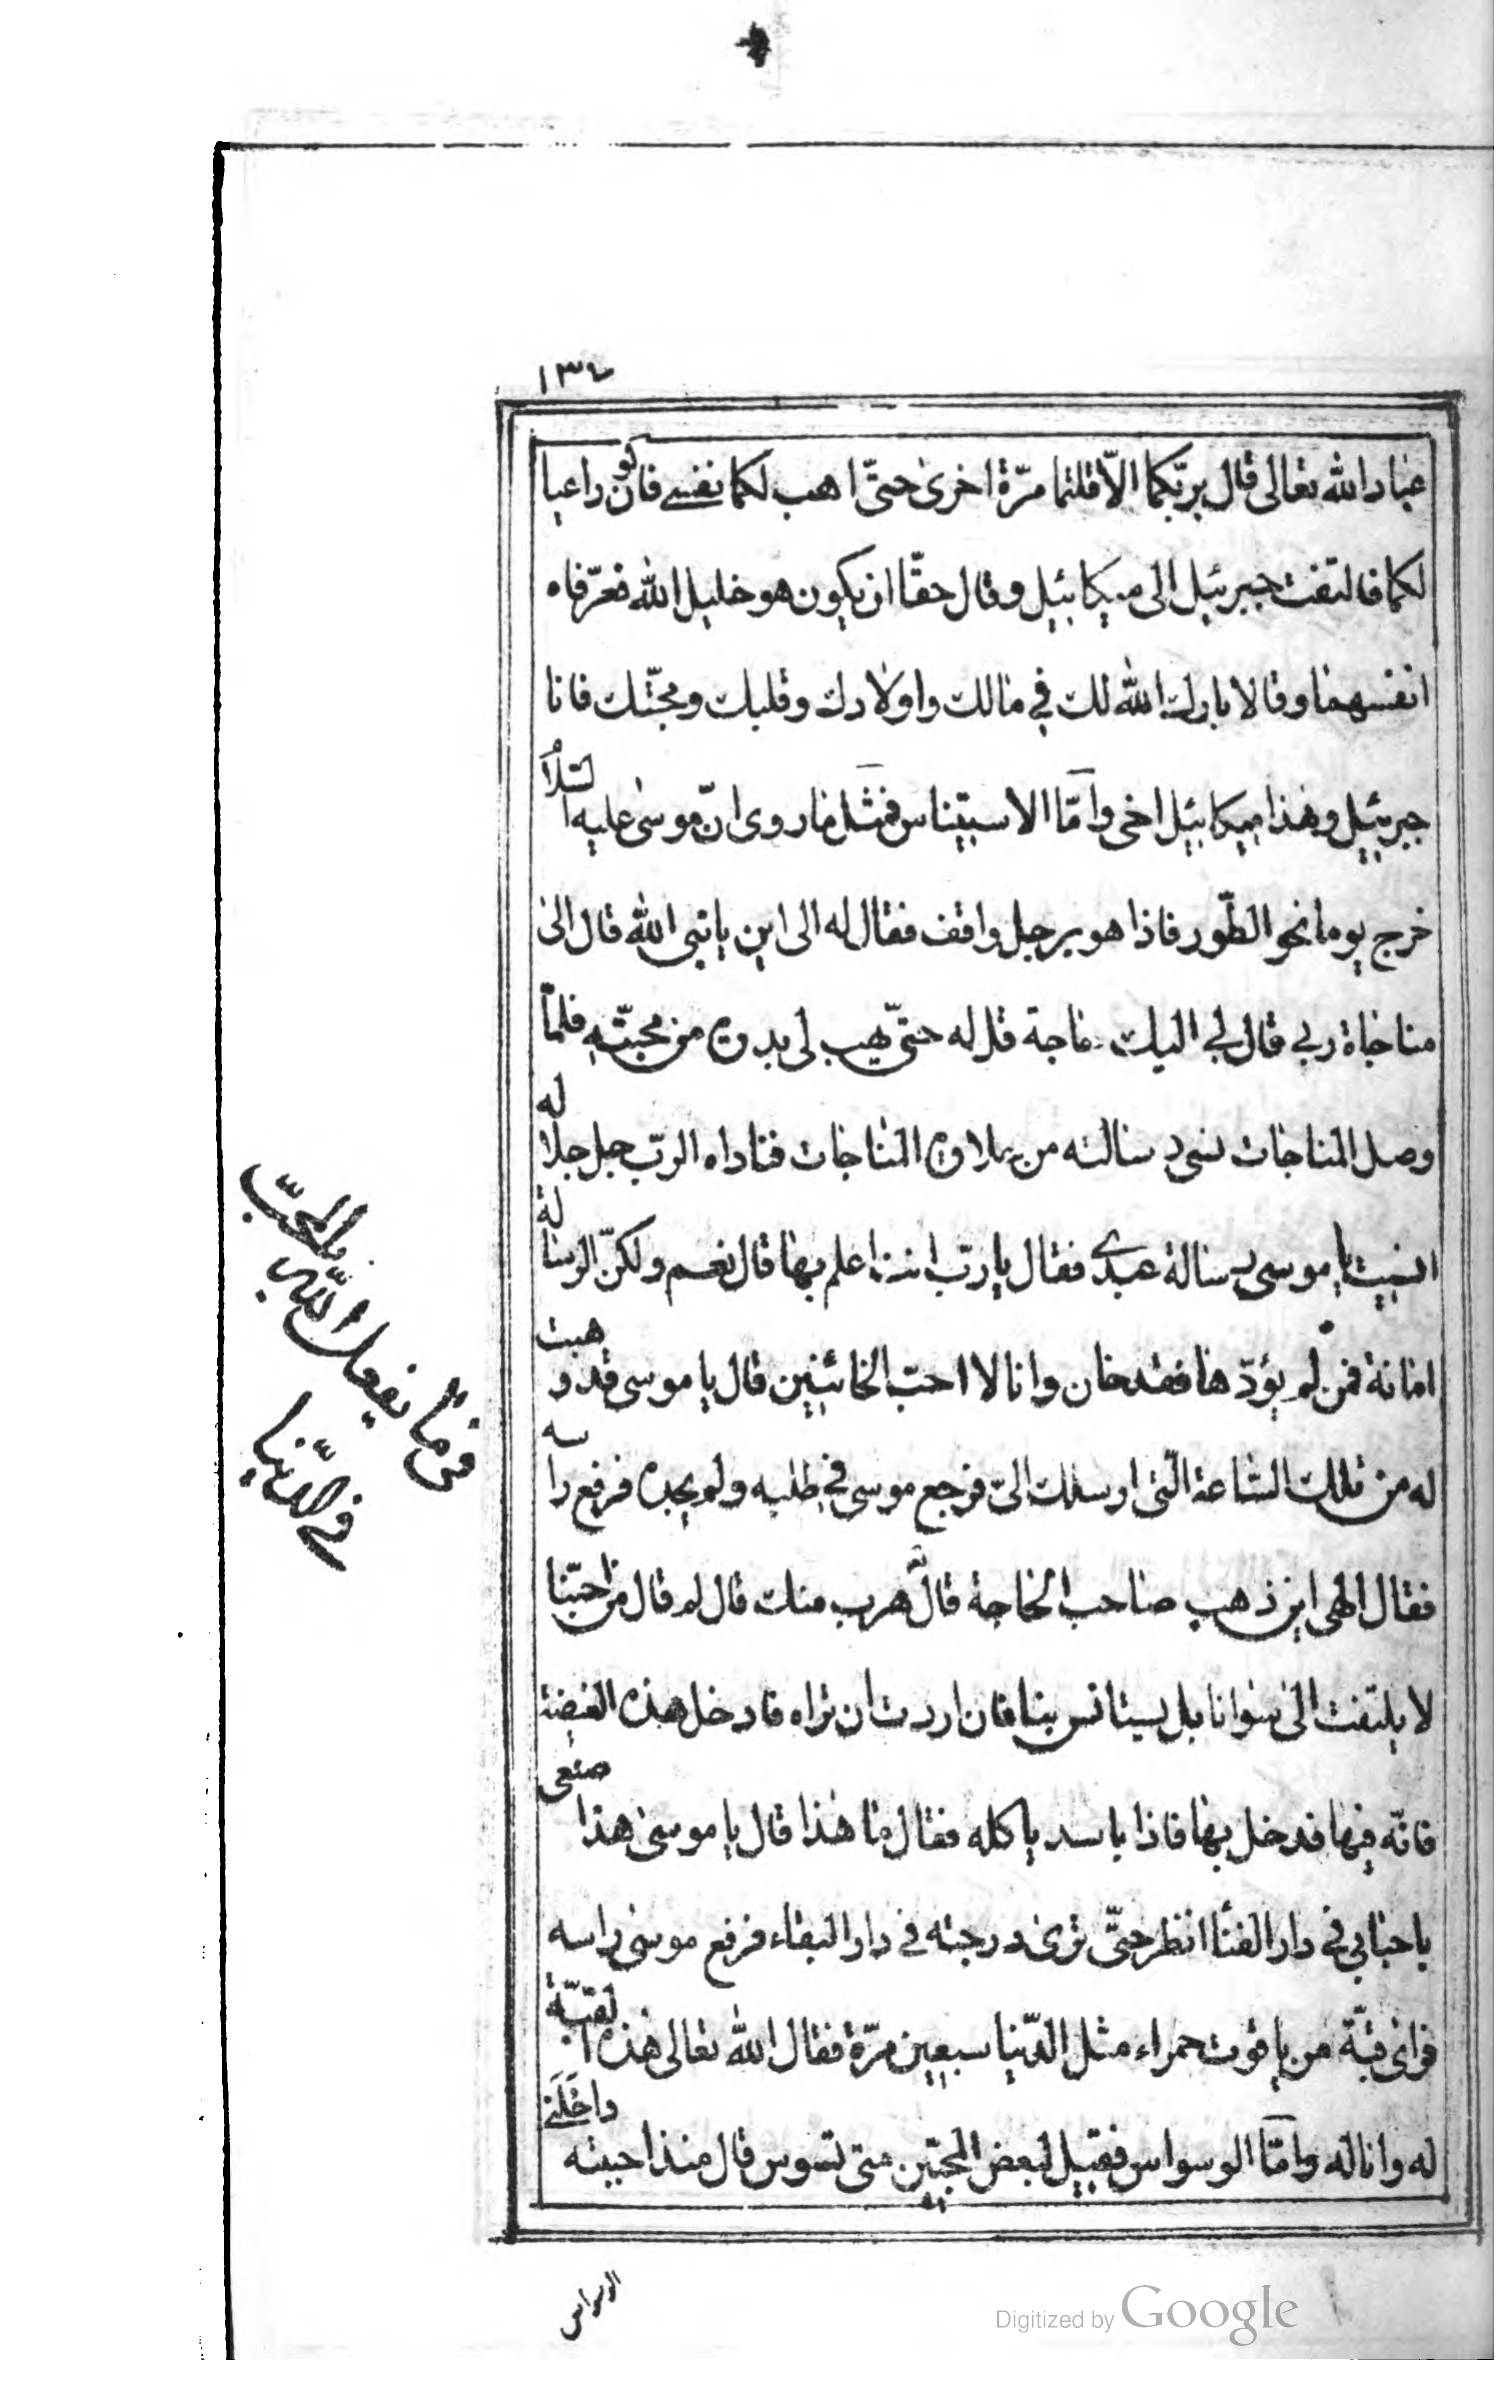 ١٣٤
عباد الله تعالى قال بربّكما الّا قلتما مرّة اخرى حتّى اهب لكما نفسى فاكون راعيا
لكما فالتفت جبرئيل الى ميكائيل وقال حقّا ان يكون هو خليل الله فعرّفاه
انفسهما وقالا بارك الله لك في مالك واولادك وقلبك ومحبّتك فانا
جبرئيل وهذا ميكائيل اخى وامّا الاستيناس فمثل ما روى انّ موسى عليه السّلام
خرج يوما نحو الطّور فاذا هو برجل واقف فقال له الى اين يا نبى الله قال الى
مناجاة ربي قال لي اليك حاجة قل له حتّى يهب لى بدون من محبّته فلمّا
وصل المناجات نسى رسالته من حلاوة المناجات فناداه الربّ جل جلاله
انسيت يا موسى رسالة عبدى فقال يا ربّ انت اعلم بها قال نعم ولكنّ الرسالة
امانة فمن لم يؤدّها فقد خان وانا لا احب الخائنين قال يا موسى قد وهبت
له من تلك السّاعة الّتى ارسلك الىّ فرجع موسى في طلبه ولم يجده فرفع راسه
فقال الهى اين ذهب صاحب الحاجة قال هرب منك قال لم قال من احبّنا
لا يلتفت الى سوانا بل يستانس بنا فان اردت ان تراه فادخل هذه الغيضة
فانّه فيها فدخل بها فاذا باسد ياكله فقال ما هذا قال يا موسى هذا صنعى
باحبابي في دار الفنا انظر حتّى ترى درجته في دار البقاء فرفع موسى راسه
فراى قبّة من ياقوت حمراء مثل الدّنيا سبعين مرّة فقال الله تعالى هذه القبّة
له وانا له وامّا الوسواس فقيل لبعض المحبّين متى تسوس قال منذ احببته واخلنى
فى ما يفعل الله بالمحبّ
في الدّنيا
الوسواس
Digitized by Google